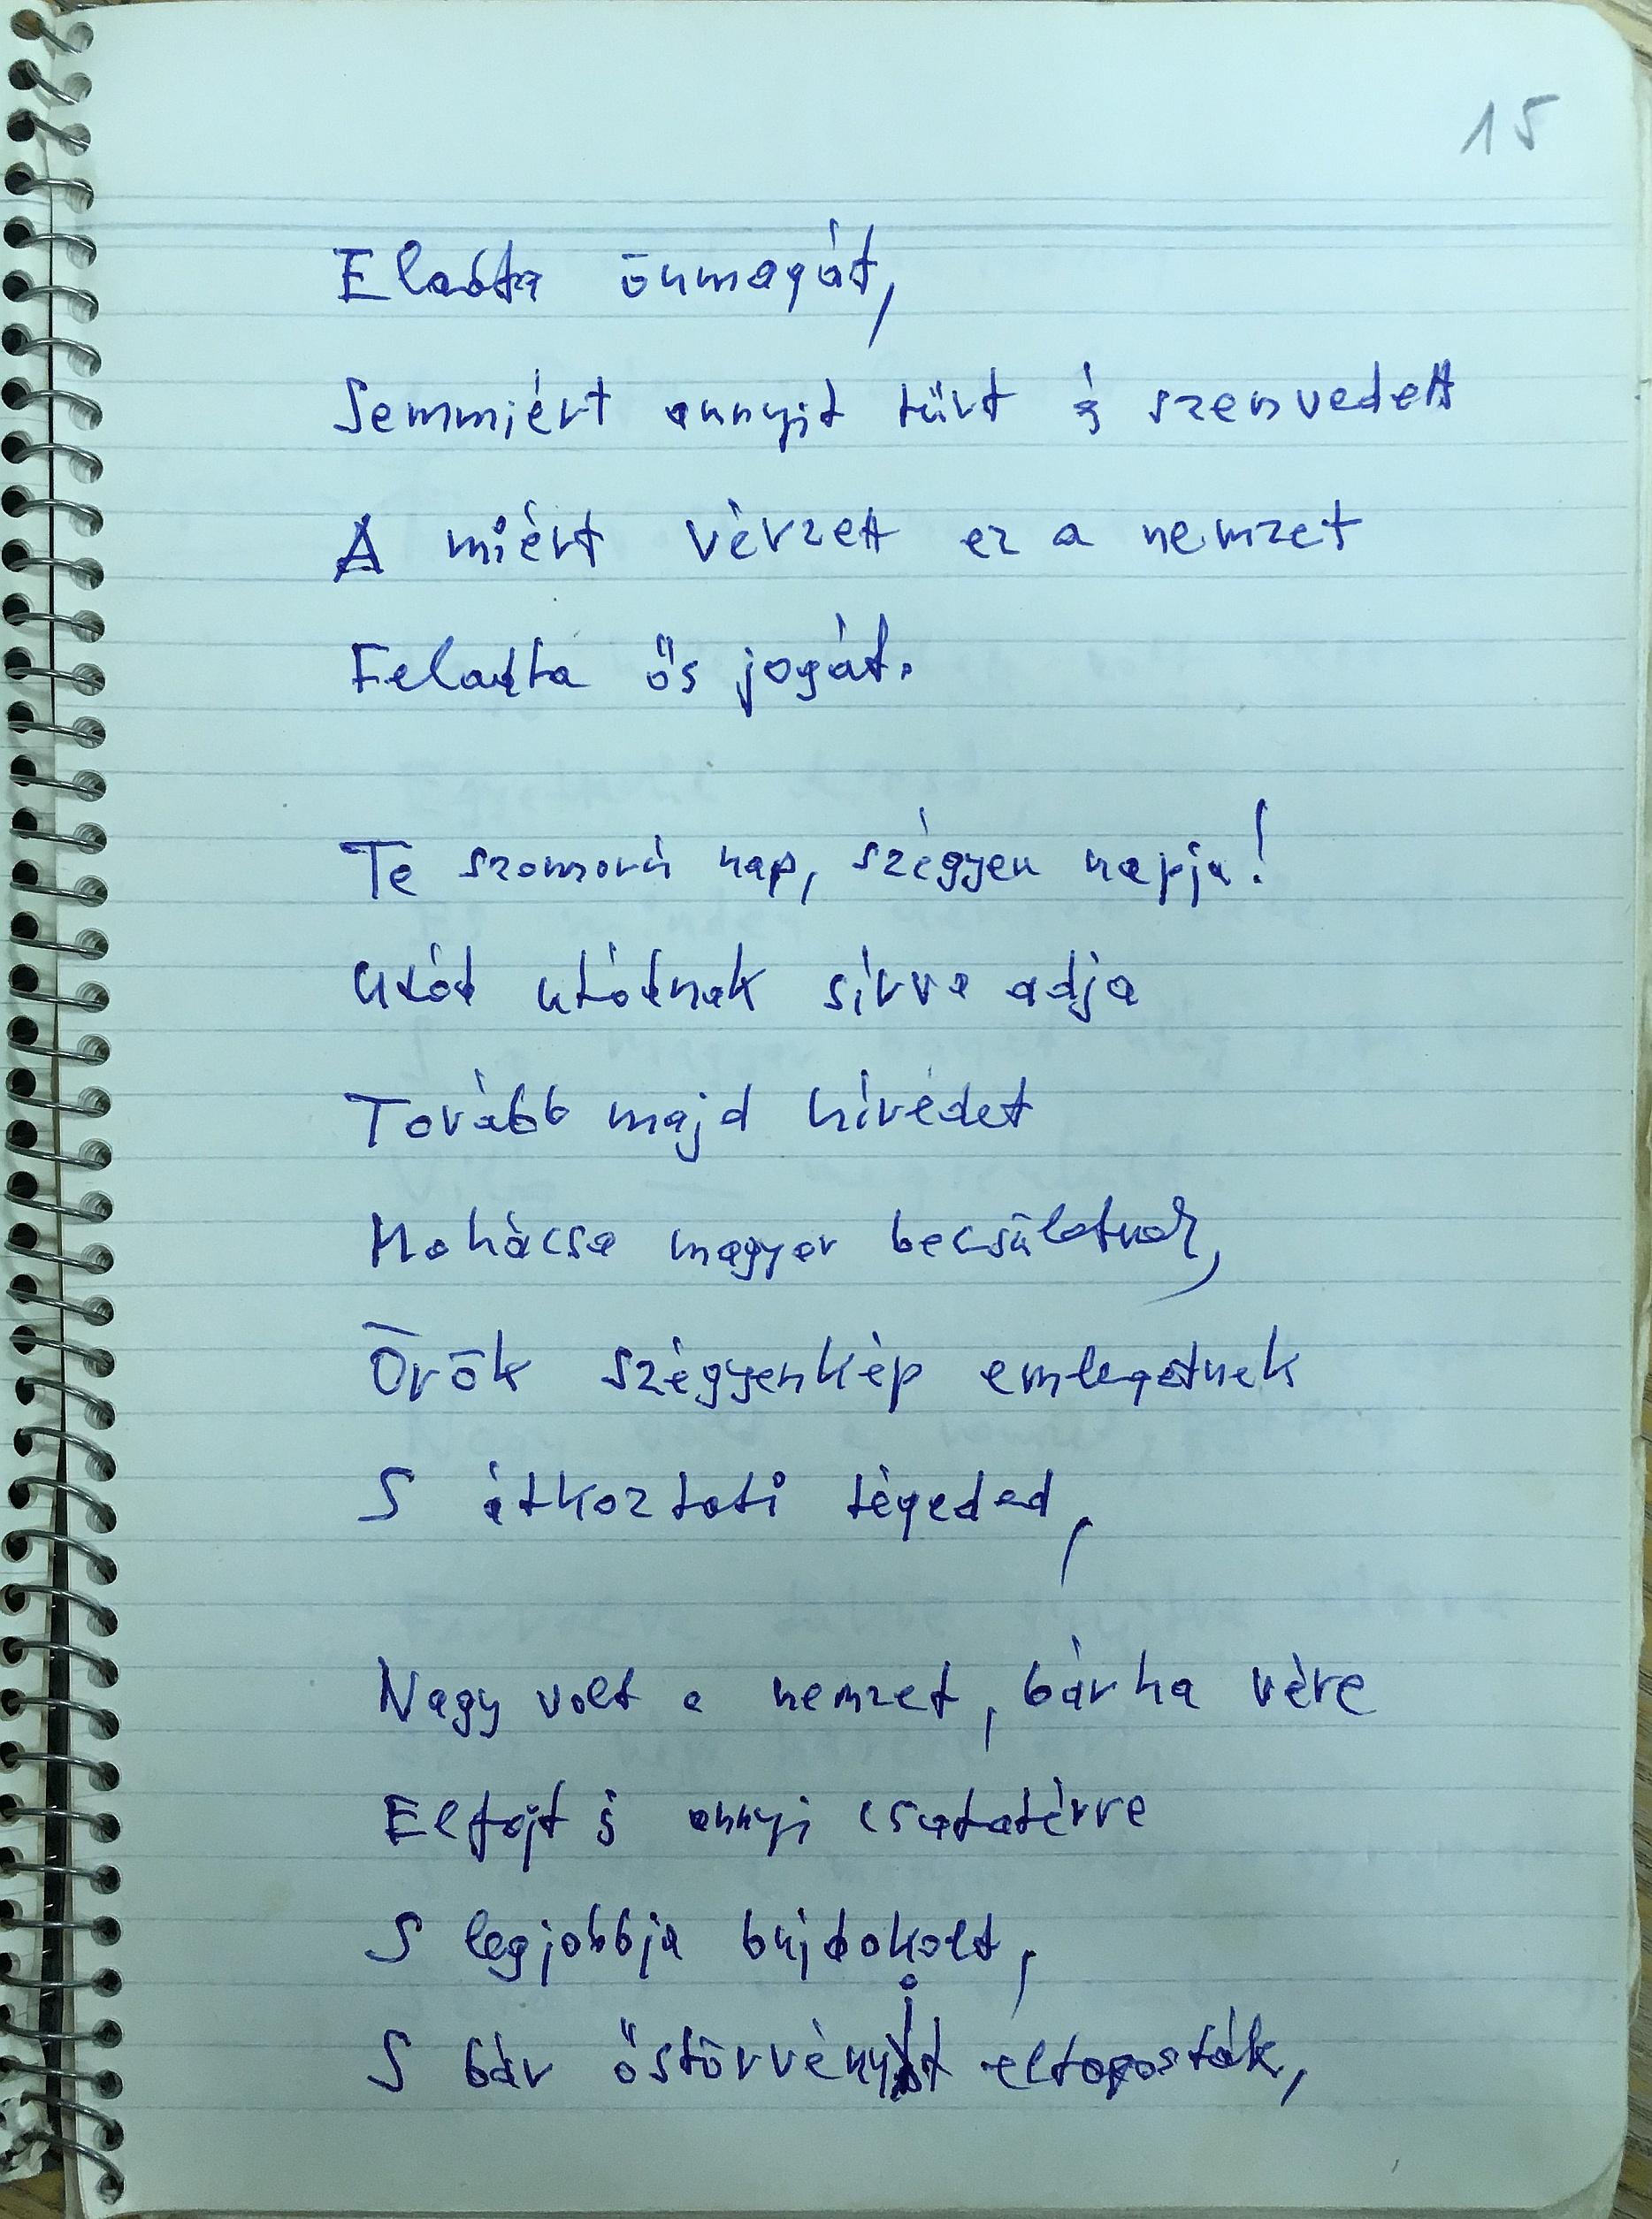 15
Eladta önmagát,
Semmiért annyit tűrt és szenvedett
A miért vérzett ez a nemzet
Feladta ős jogát.
Te szomorú nap, szégyen napja!
Utód utódnak sírva adja
Tovább majd hívedet
Mohácsa magyar becsületnek,
Örök szégyenkép emlegetnek
S átkoztati tégeded,
Nagy volt a nemzet, bárha vére
Elfojt s annyi csatatérre
S legjobbja bújdokolt,
S bár őstörvényit eltaposták,